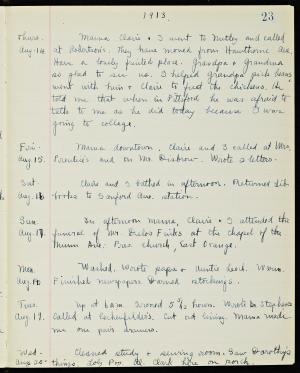 1913
23
Thurs. Mama, Claire & I went to Nutley and called
Aug. 14. at Robertson's. They have moved from Hawthorne Ave.
Have a lovely painted place. Grandpa & Grandma
so glad to see us. I helped Grandpa pick beans
went with him & Claire to feed the chickens. He
told me that when in Pittsford he was afraid to
talk to me as he did today because I was
going to college.
Fri. Mama downtown. Claire and I called at Mrs.
Aug. 15. Prentice's and on Mr. Disbrow. Wrote letters.
Sat. Claire and I bathed in afternoon. Returned lib.
Aug. 16 books to Sanford Ave. station.
Sun. In afternoon Mama, Claire & I attended the
Aug. 17. funeral of Mr. Finks at the chapel of the
Munn Ave. Pres. church, East Orange.
Mon. Washed. Wrote papa & auntie. Warm.
Aug. 18 Finished newspapers. Darned stockings.
Tues. Up at 6 a.m. Ironed 5 hours. Wrote Stephens
Aug. 19. Called at Cut out Mama made
me one pair drawers.
Wed. Cleaned study & sewing room. Saw Dorothy's
Aug. 20. things. Clark here on porch.